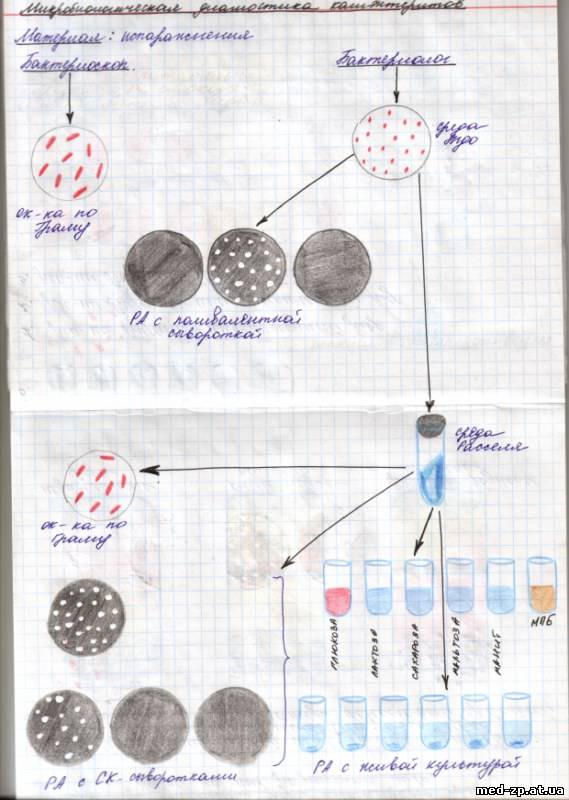 Микробиологическая диагностика колиэнтеритов
Материал: испражнения
Бактериоскоп.
Бактериолог
среда
Эндо
ок-ка по
Граму
РА с поливалентной
сывороткой
среда
Расселя
ок-ка по
Граму
глюкоза
лактоза
сахароза
мальтоза
манит
МПБ
РА с ОК-сыворотками
РА с живой культурой
med-zp.at.ua